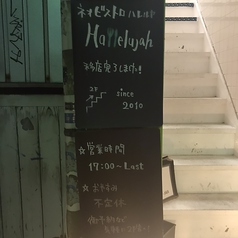 ネオビストロ ハレルヤ
Hallelujah
移店完了しました!!
2F
since
2010
☆営業時間
17:00〜Last
☆お休み
不定休